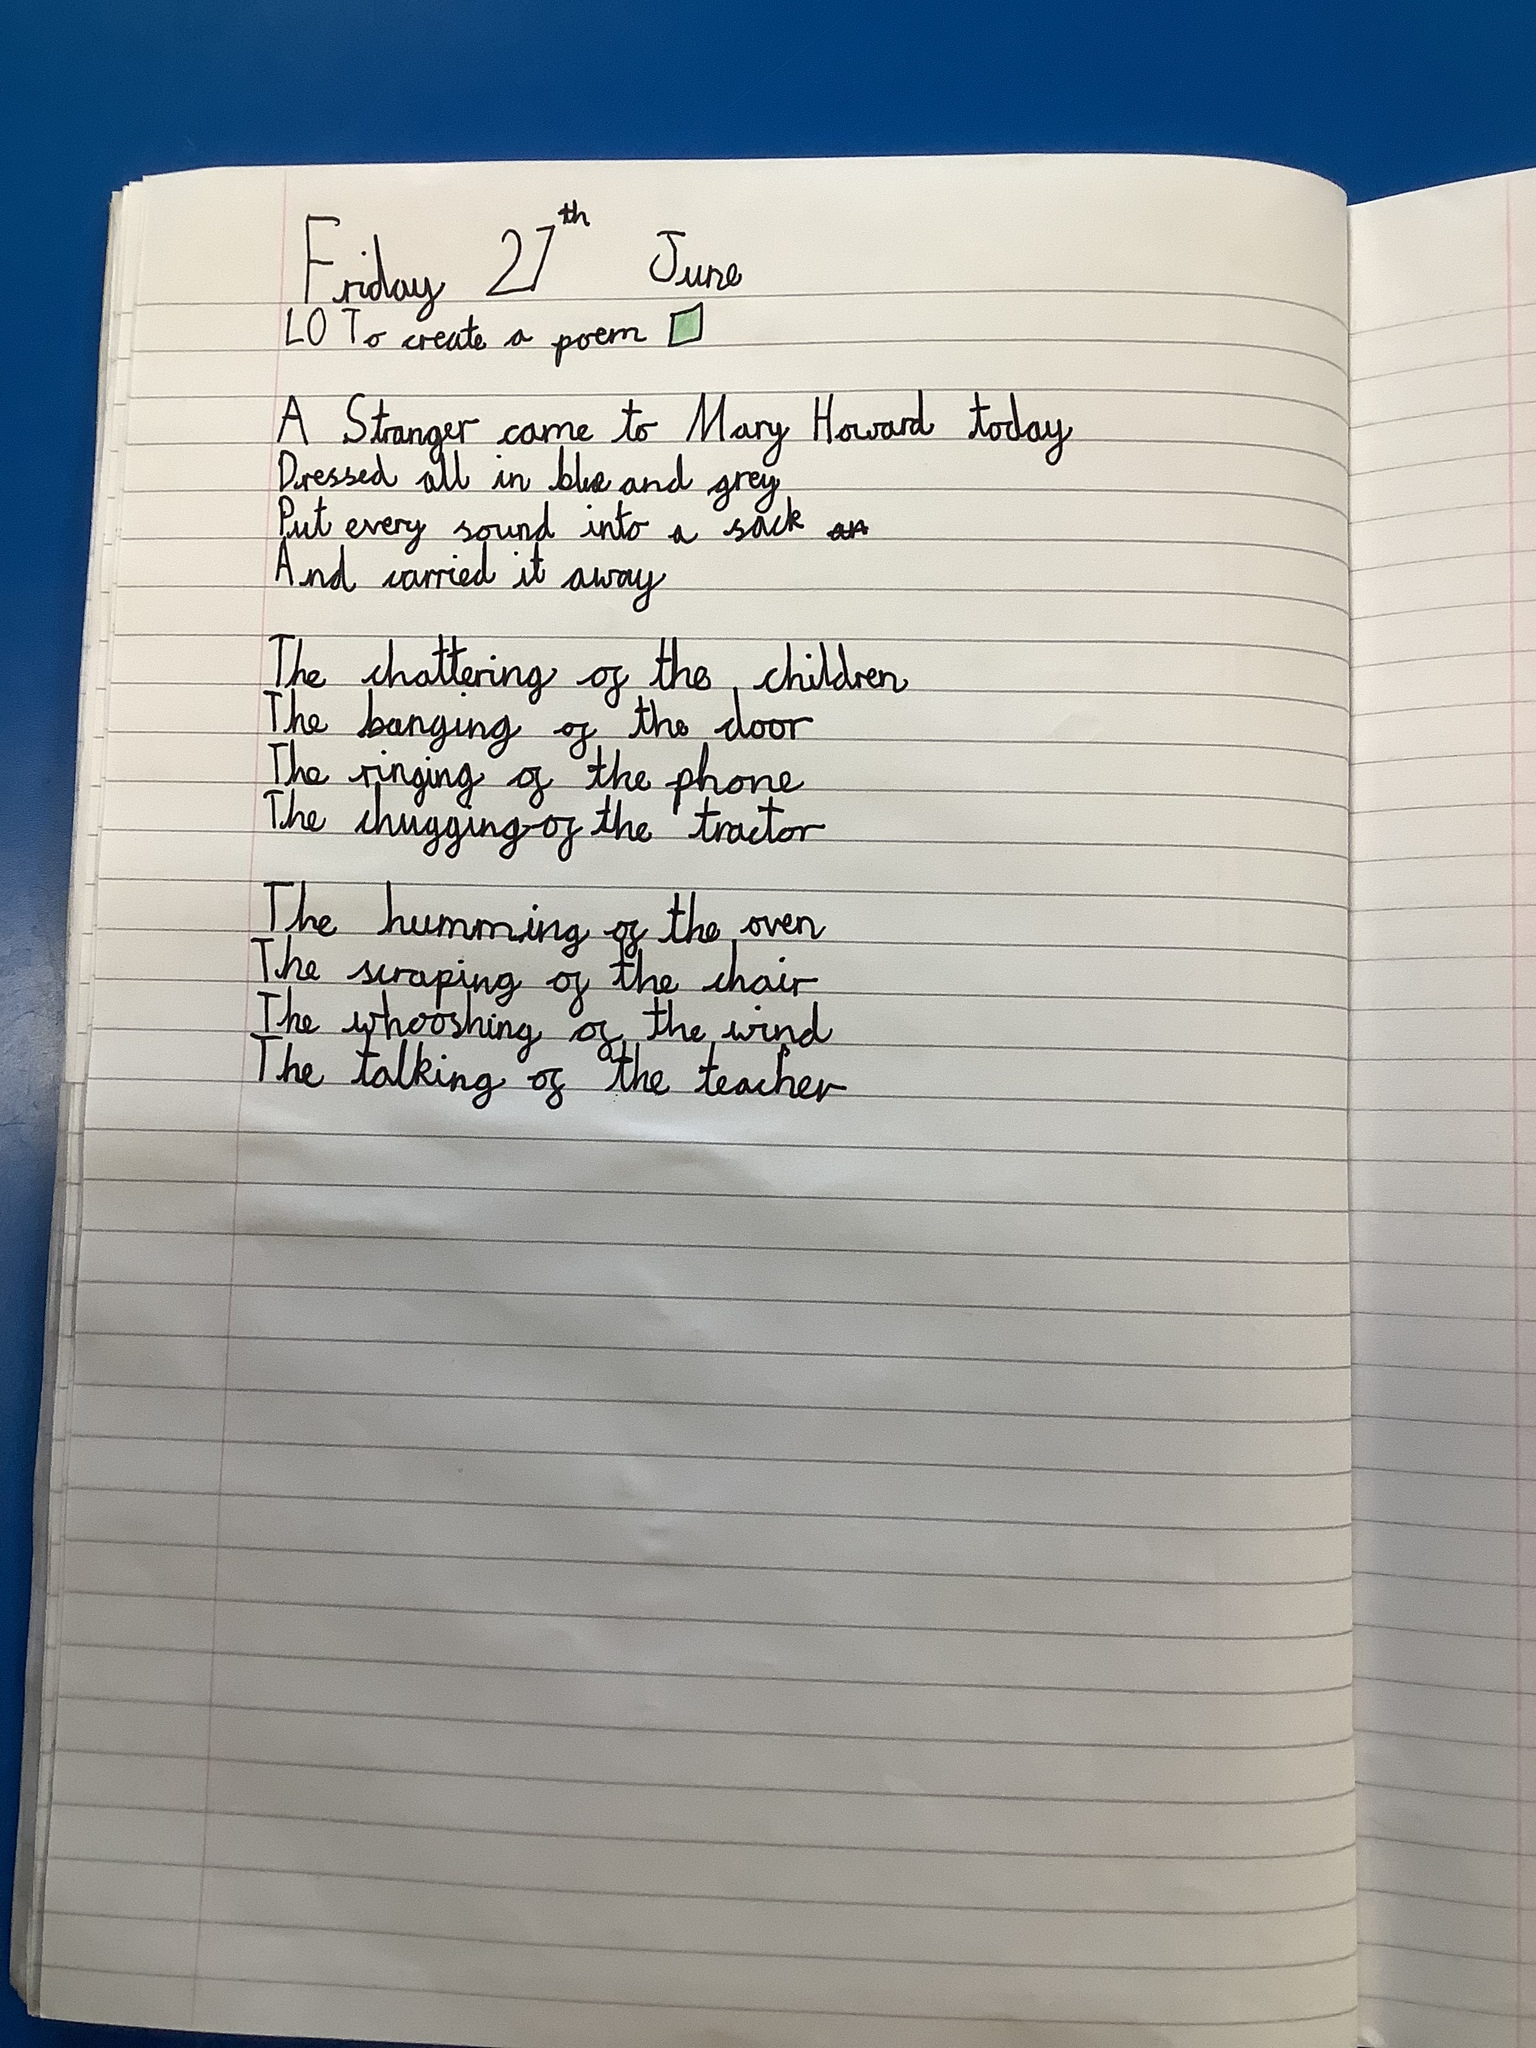 Friday 27th June
LO To create a poem
A Stranger came to Mary Howard today
Dressed all in blue and grey
Put every sound into a sack an
And carried it away
The chattering of the children
The banging of the door
The ringing of the phone
The chugging of the tractor
The humming of the oven
The scraping of the chair
The whooshing of the wind
The talking of the teacher